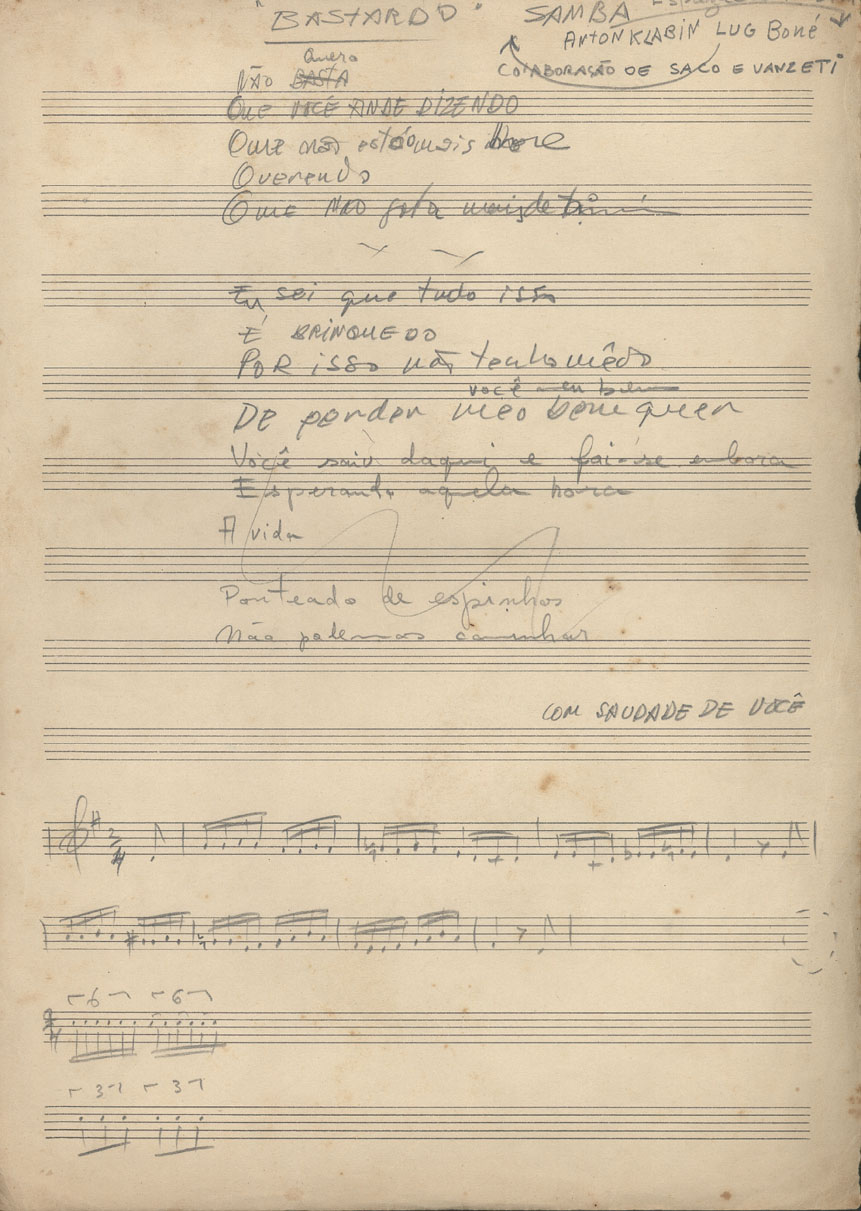 "BASTARDO" SAMBA
ANTON KLABIN LUG Boné
COLABORAÇÃO DE SACO E VANZETI
Quero
NÃO BASTA
QUE VOCÊ ANDE DIZENDO
Que não está mais
Querendo
QUE NÃO gosta mais de mim
Eu sei que tudo isso
É BRINQUEDO
POR isso não tenho mêdo
você meu bem
DE perder meo bem quer
Você saiu daqui e foi-se embora
Esperando aquela hora
A vida
Ponteado de espinhos
Não podemos caminhar
COM SAUDADE DE VOCÊ
2
4
6 6
3 3